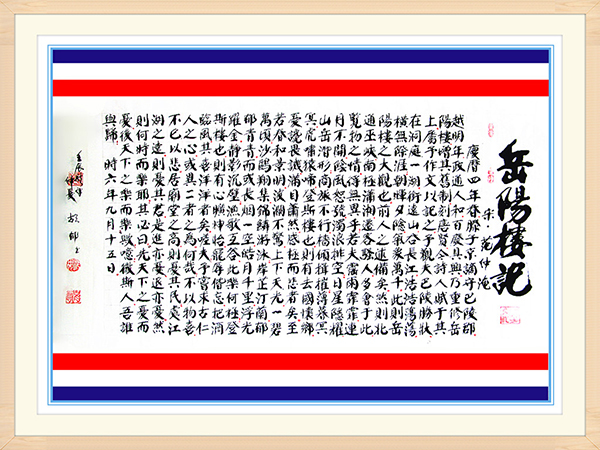 岳陽樓記
宋·范仲淹
慶曆四年春滕子京謫守巴陵郡
越明年政通人和百廢具興乃重修岳
陽樓增其舊制刻唐賢今詩人賦于其
上屬予作文以記之予觀夫巴陵勝狀
在洞庭一湖銜遠山吞長江浩浩蕩蕩
橫無際涯朝暉夕陰氣象萬千此則岳
陽樓之大觀也前人之述備矣然則北
通巫峽南極瀟湘遷客騷人多會于此
覽物之情得無異乎若夫霪雨霏霏連
月不開陰風怒號濁浪排空日星隱耀
山岳潛形商旅不行檣傾楫摧薄暮冥
冥虎嘯猿啼登斯樓也則有去國懷鄉
憂讒畏譏滿目蕭然感極而悲者矣至
若春和景明波瀾不驚上下天光一碧
萬頃沙鷗翔集錦鱗游泳岸芷汀蘭郁
郁青青而或長煙一空皓月千里浮光
耀金靜影沉璧漁歌互答此樂何極登
斯樓也則有心曠神怡寵辱皆忘把酒
臨風其喜洋洋者矣嗟夫予嘗求古仁
人之心或異二者之為何哉不以物喜
不以己悲居廟堂之高則憂其民處江
湖之遠則憂其君是進亦憂退亦憂然
則何時而樂耶其必曰先天下之憂而
憂後天下之樂而樂歟噫微斯人吾誰
與歸 時六年九月十五日
壬辰